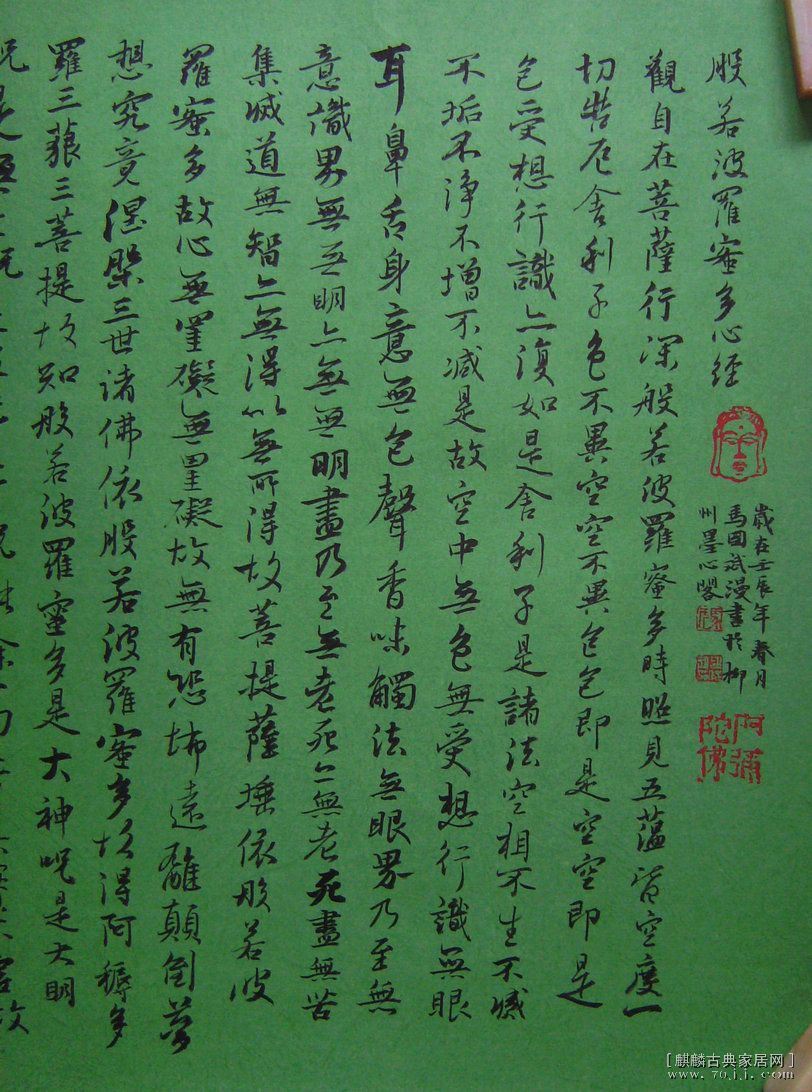 般若波羅蜜多心經
歲在壬辰年春月
馬國斌漫書於柳
州墨心閣
阿彌
陀佛
觀自在菩薩行深般若波羅蜜多時照見五蘊皆空度一
切苦厄舍利子色不異空空不異色色即是空空即是
色受想行識亦復如是舍利子是諸法空相不生不滅
不垢不淨不增不減是故空中無色無受想行識無眼
耳鼻舌身意無色聲香味觸法無眼界乃至無
意識界無無明亦無無明盡乃至無老死亦無老死盡無苦
集滅道無智亦無得以無所得故菩提薩埵依般若波
羅蜜多故心無罣礙無罣礙故無有恐怖遠離顛倒夢
想究竟涅槃三世諸佛依般若波羅蜜多故得阿耨多
羅三藐三菩提故知般若波羅蜜多是大神咒是大明
咒是無上咒
[麒麟古典家居网]
www.70jj.com